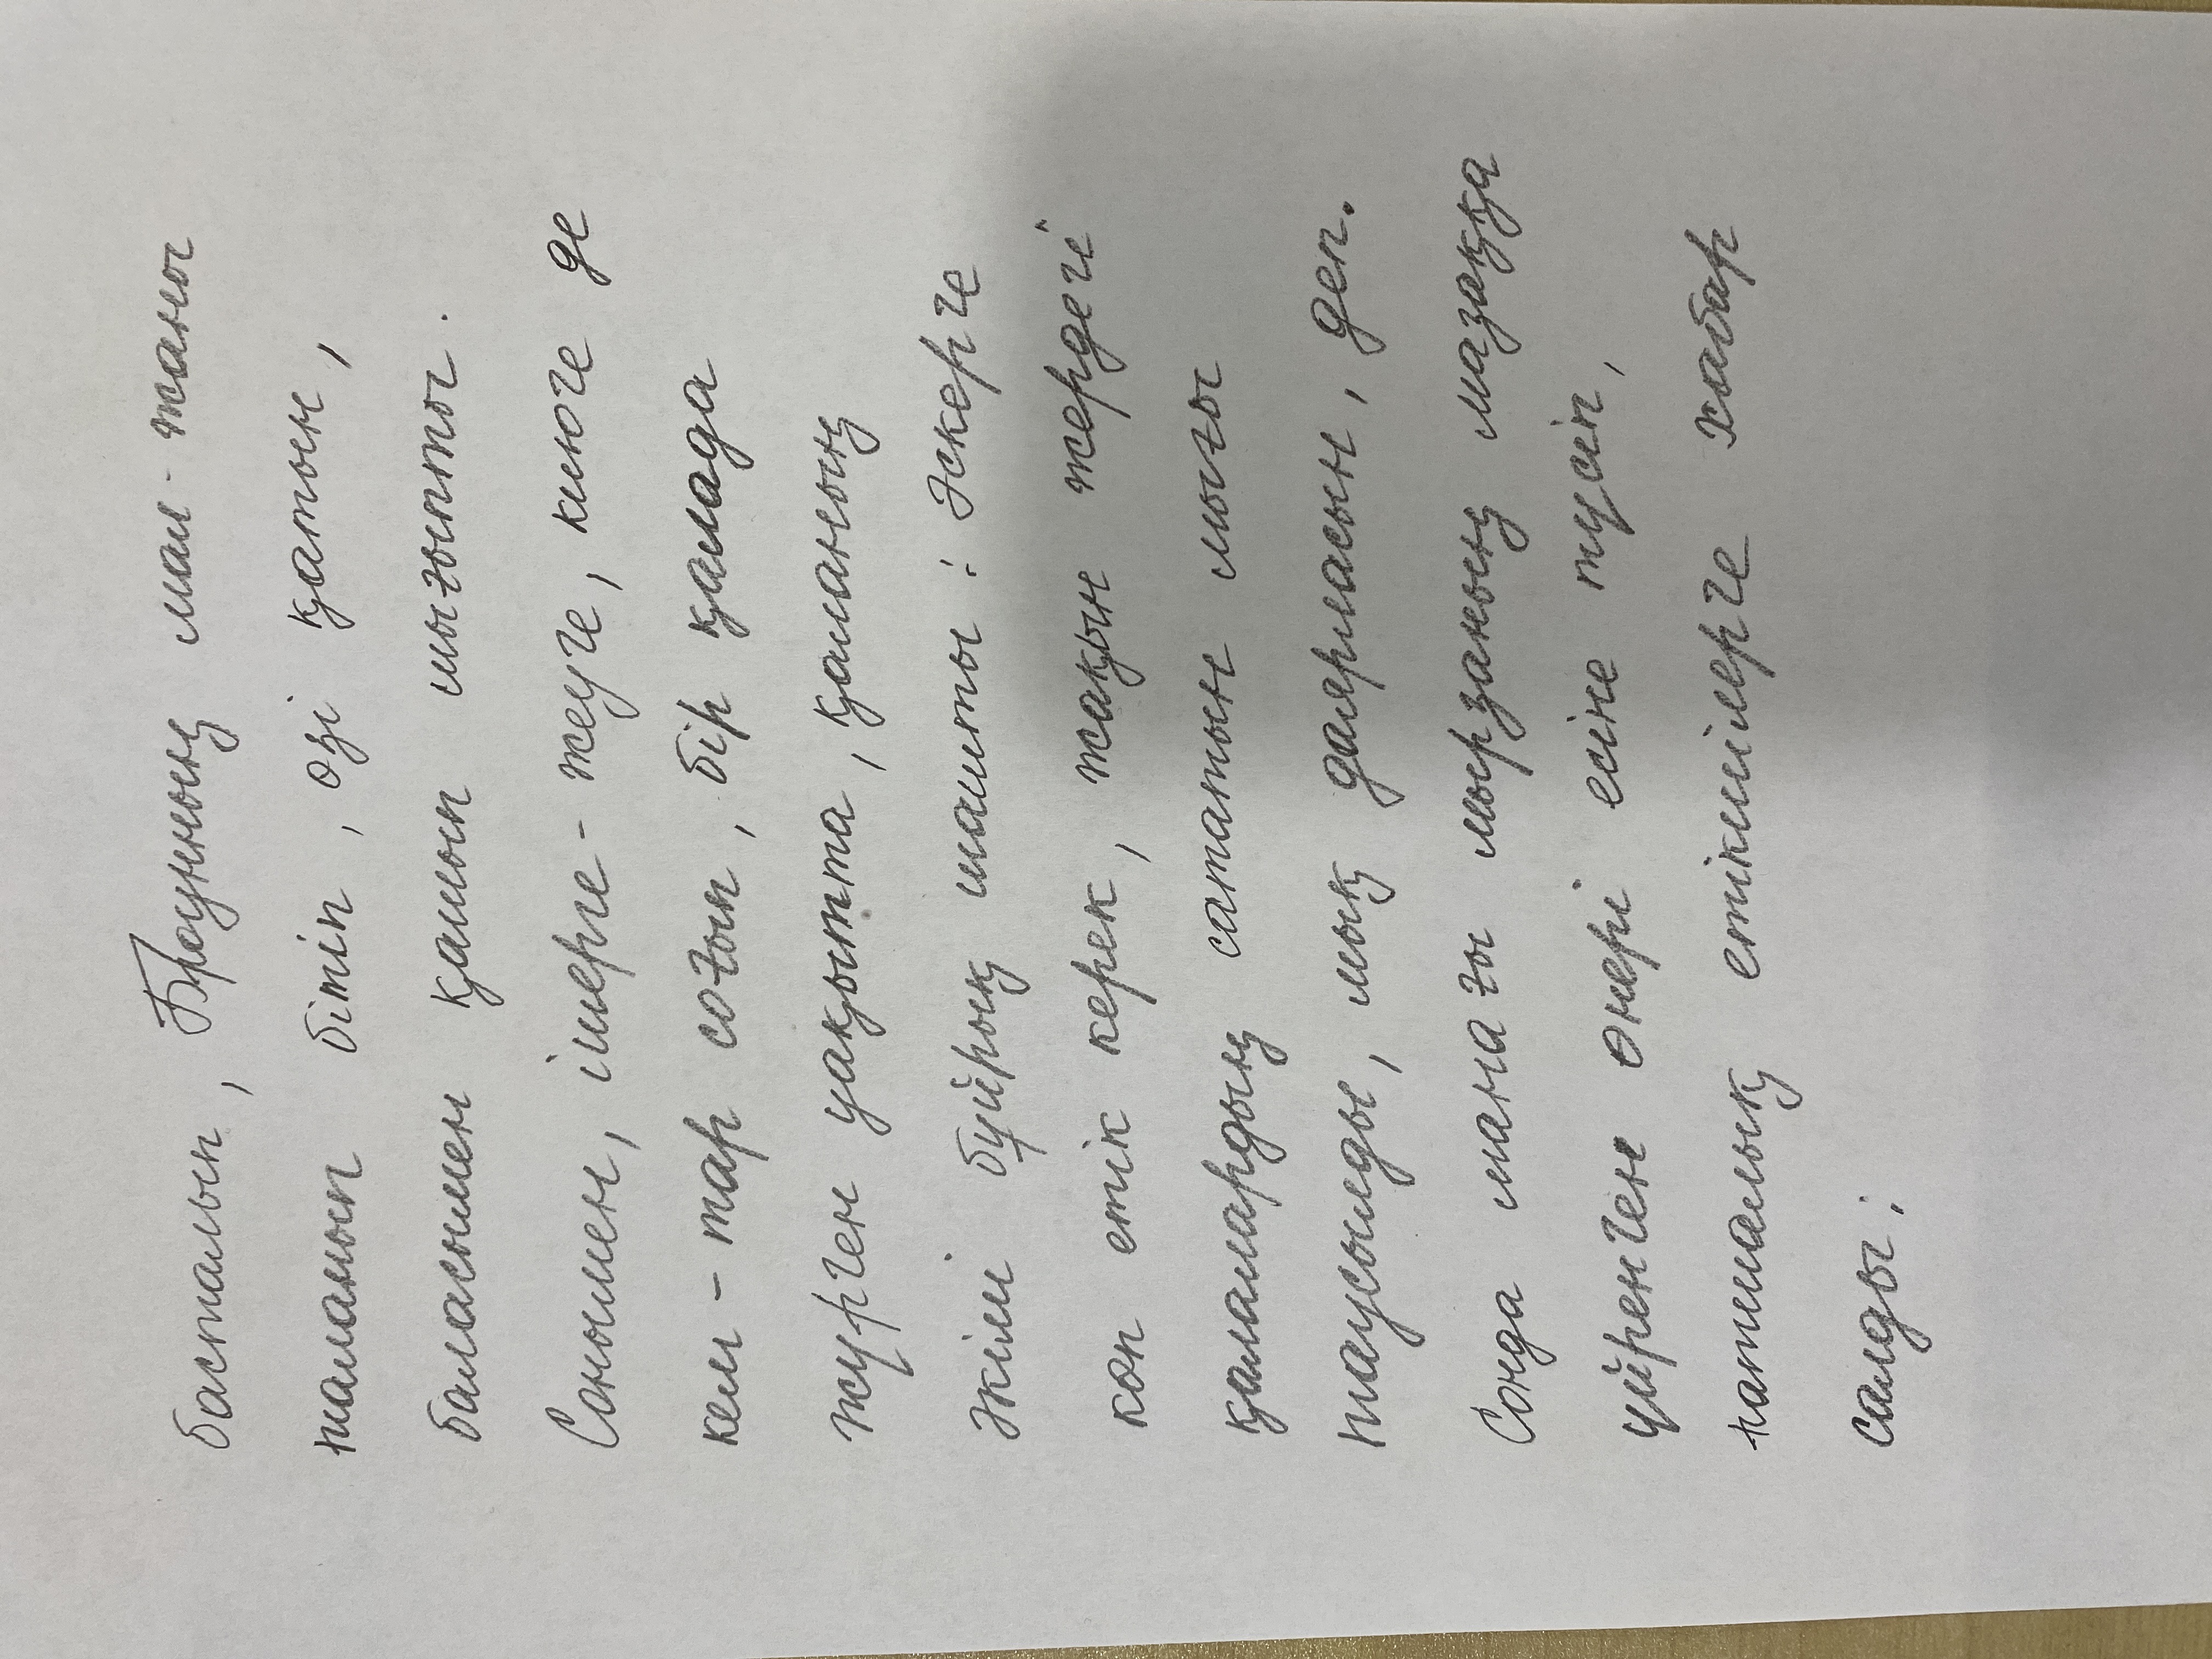 басталып, Броунның мал-жаны
таланып бітіп, өзі қатын,
баласымен қашып шығыпты.
Сонымен, ішерге-жеуге, киюге де
кем-тар соғып, бір қалада
жүрген уақытта, қаланың
әкімі бұйрық шашты: Әскерге
көп етік керек, жақын жердегі
қалалардың сататын мығы
таусылды, мық даярласын, деп.
Сонда манағы мырзаның мазаққа
үйренген өнері есіне түсіп,
патшалық етікшілерге хабар
салды: